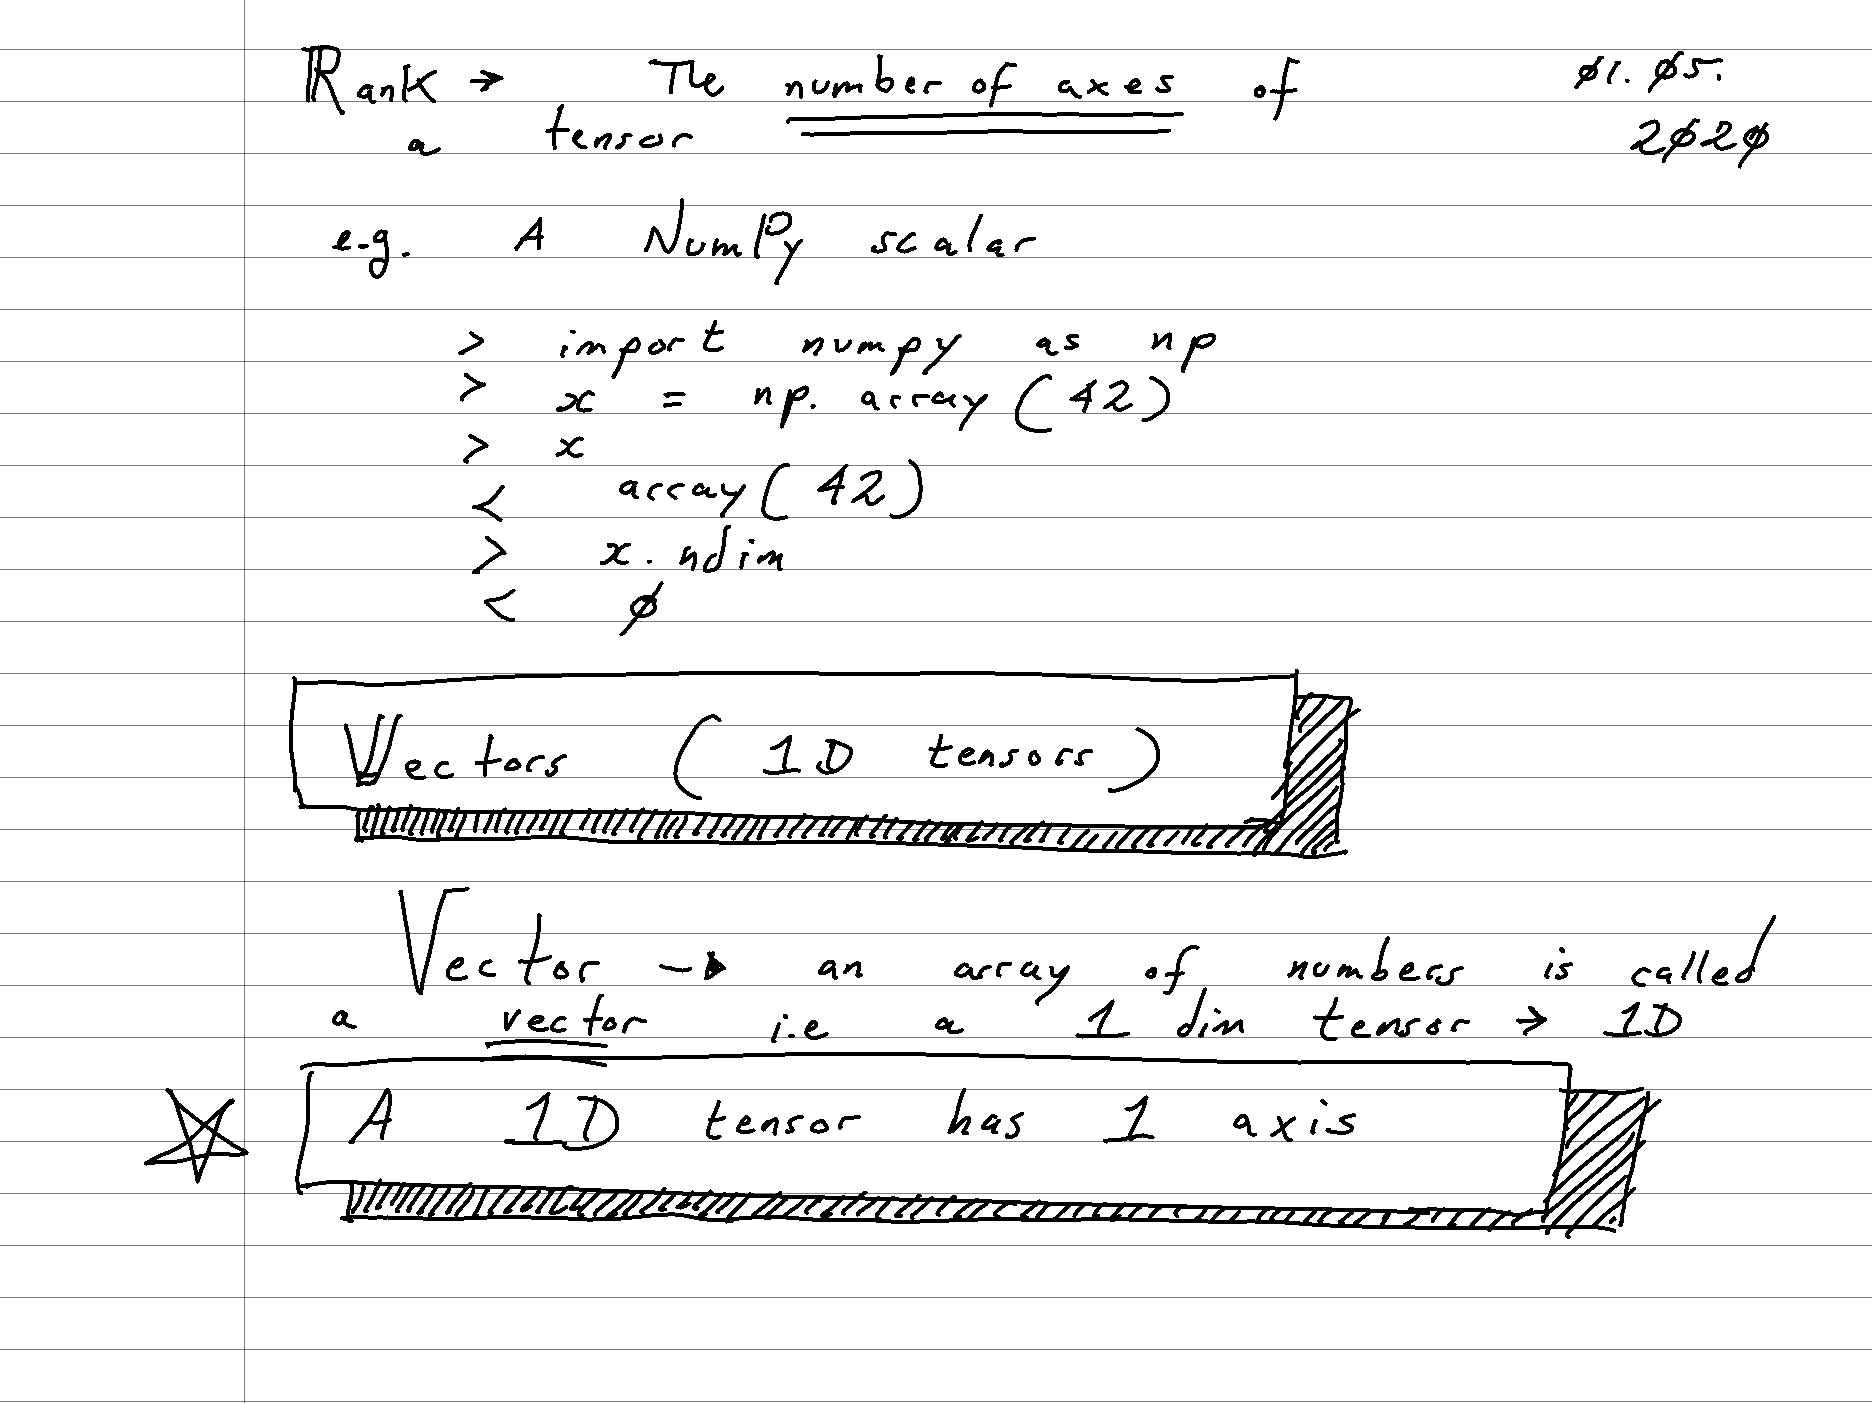 Rank → The number of axes of
a tensor
01.05.
2020
e.g. A NumPy scalar
> import numpy as np
> x = np.array(42)
> x
< array(42)
> x.ndim
< 0
Vectors (1D tensors)
Vector → an array of numbers is called
a vector i.e a 1 dim tensor → 1D
A 1D tensor has 1 axis